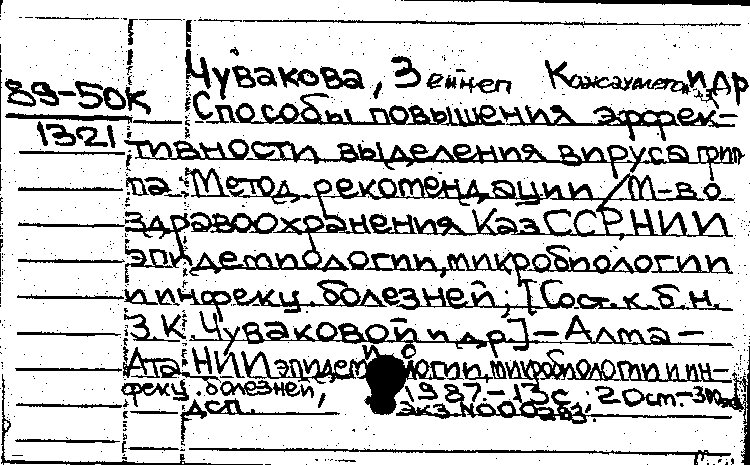 Чувакова, Зейнеп и др
89-50к
1321
Способы повышения эффек-
тивности выделения вируса грип-
па: Метод. рекомендации / М-во
здравоохранения КазССР, НИИ
эпидемиологии, микробиологии
и инфекц. болезней; [Сост. к.б.н.
З.К. Чуваковой и др.] — Алма-
Ата: НИИ эпидемиологии, микробиологии и ин-
фекц. болезней, 1987.-13с ; 20см.-
ДСП. экз. N000283.